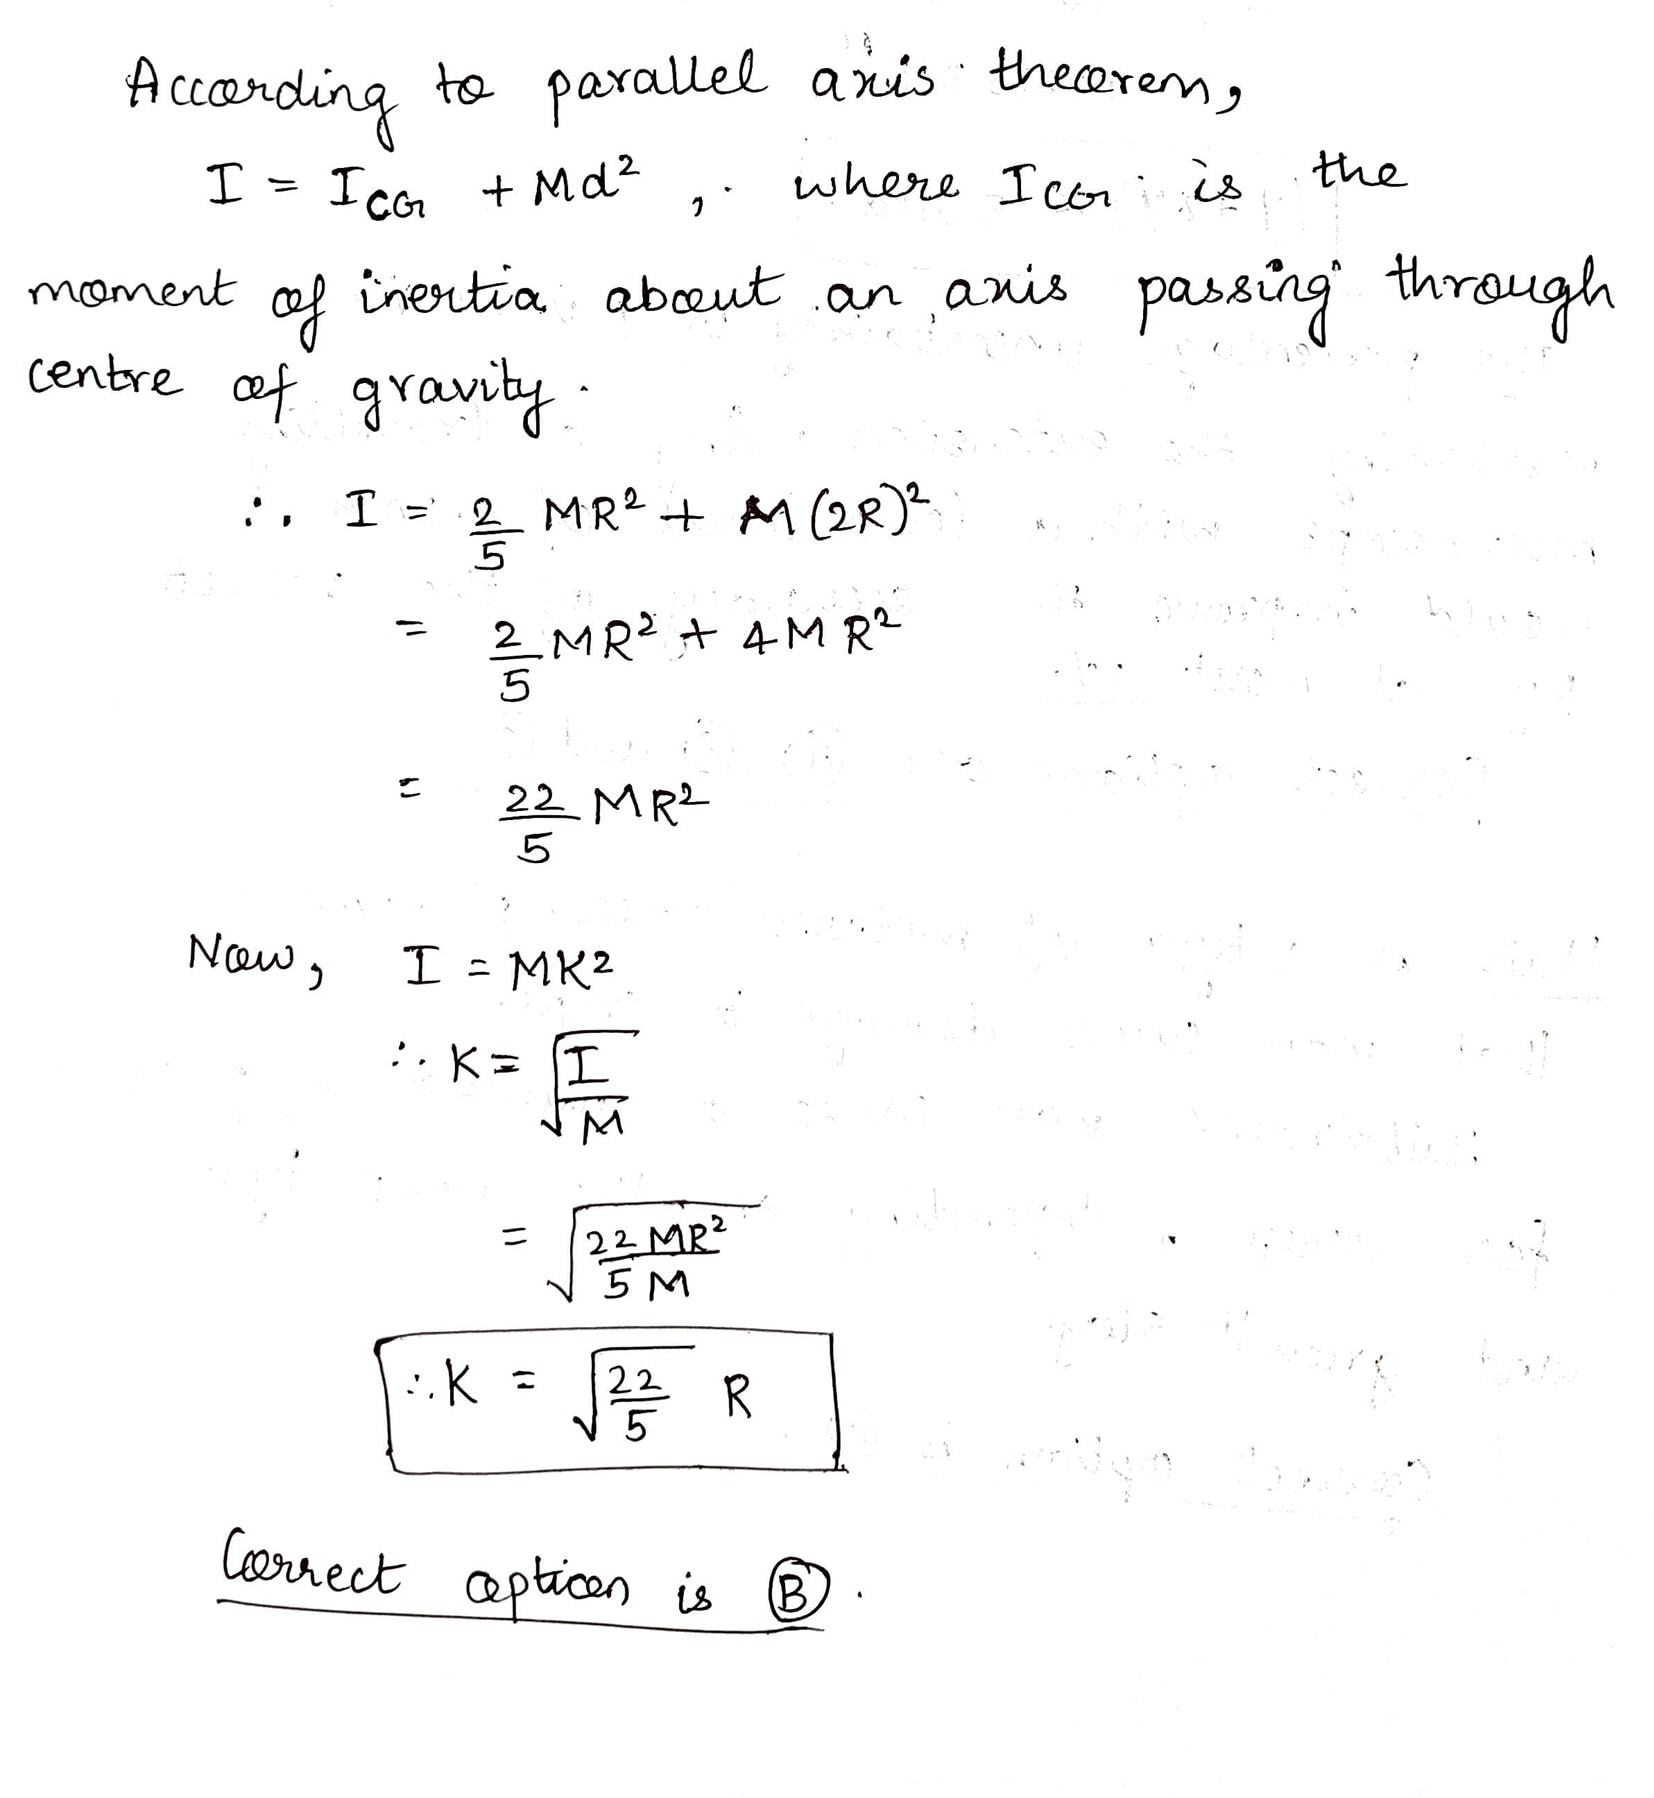 According to parallel axis theorem,
I = I_CG + Md², where I_CG is the
moment of inertia about an axis passing through
centre of gravity.
∴ I = 2/5 MR² + M(2R)²
= 2/5 MR² + 4MR²
= 22/5 MR²
Now, I = MK²
∴ K = √(I/M)
= √(22MR²/5M)
∴ K = √(22/5) R
Correct option is (B).